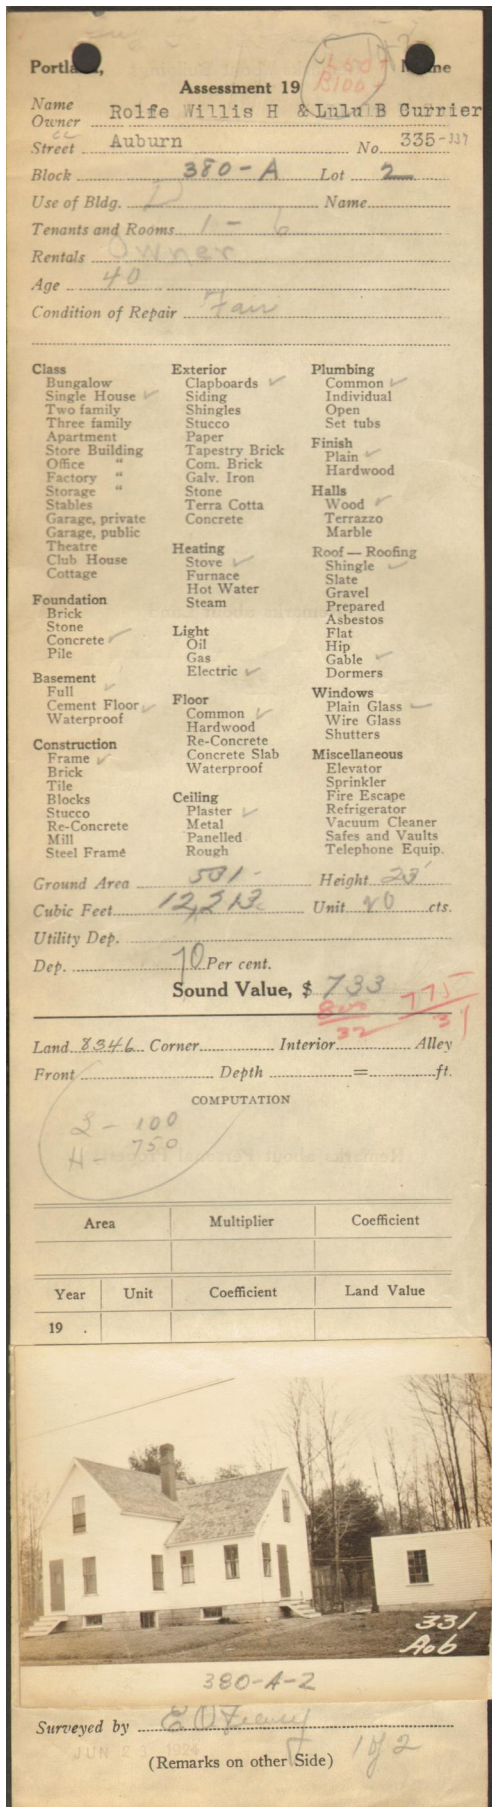 Portland, Maine
L50+
B100+
Assessment 19
Name
Owner Rolfe Willis H & Lulu B Currier
Street Auburn No. 335-337
Block 380-A Lot 2
Use of Bldg. D Name
Tenants and Rooms 1 - 6
Rentals Owner
Age 40
Condition of Repair Fair
Class
Bungalow
Single House ✓
Two family
Three family
Apartment
Store Building
Office "
Factory "
Storage "
Stables
Garage, private
Garage, public
Theatre
Club House
Cottage
Foundation
Brick
Stone
Concrete ✓
Pile
Basement
Full ✓
Cement Floor ✓
Waterproof
Construction
Frame ✓
Brick
Tile
Blocks
Stucco
Re-Concrete
Mill
Steel Frame
Exterior
Clapboards ✓
Siding
Shingles
Stucco
Paper
Tapestry Brick
Com. Brick
Galv. Iron
Stone
Terra Cotta
Concrete
Heating
Stove ✓
Furnace
Hot Water
Steam
Light
Oil
Gas
Electric ✓
Floor
Common ✓
Hardwood
Re-Concrete
Concrete Slab
Waterproof
Ceiling
Plaster ✓
Metal
Panelled
Rough
Plumbing
Common ✓
Individual
Open
Set tubs
Finish
Plain ✓
Hardwood
Halls
Wood ✓
Terrazzo
Marble
Roof — Roofing
Shingle ✓
Slate
Gravel
Prepared
Asbestos
Flat
Hip
Gable ✓
Dormers
Windows
Plain Glass ✓
Wire Glass
Shutters
Miscellaneous
Elevator
Sprinkler
Fire Escape
Refrigerator
Vacuum Cleaner
Safes and Vaults
Telephone Equip.
Ground Area 531- Height 23'
Cubic Feet 12,213 Unit 20 cts.
Utility Dep.
Dep. 70 Per cent.
Sound Value, $ 733
800 775
32 31
Land 8346 Corner Interior Alley
Front Depth = ft.
COMPUTATION
L - 100
H - 750
Area Multiplier Coefficient
Year Unit Coefficient Land Value
19 .
331
Aub
380-A-2
Surveyed by
JUN
(Remarks on other Side) 1 of 2